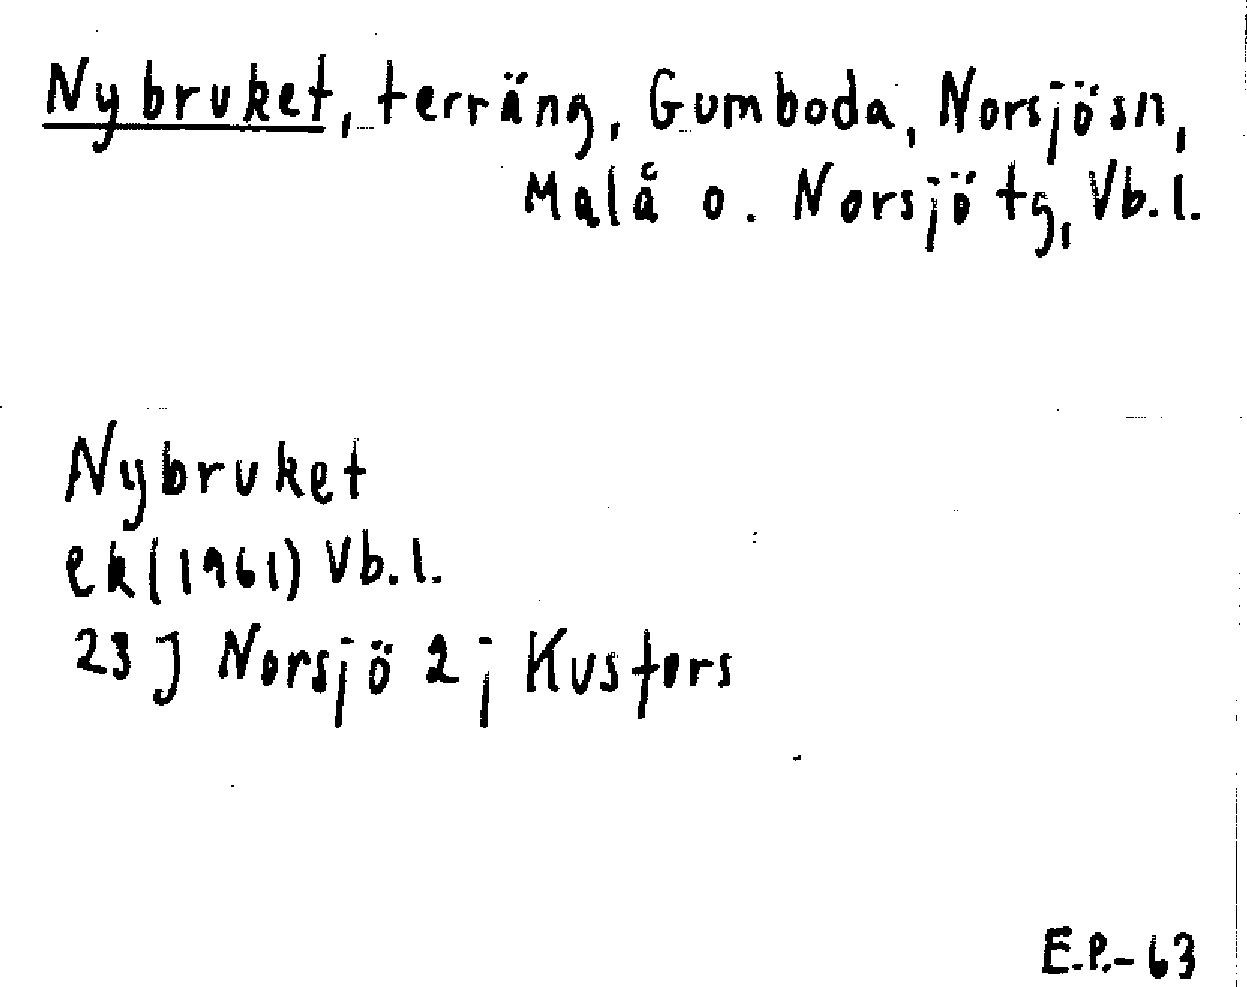 Nybruket, terräng, Gumboda, Norsjö sn,
Malå o. Norsjö tg, Vb. l.
Nybruket
ek (1961) Vb. l.
23 J Norsjö 2 j Kusfors
E.P.-63